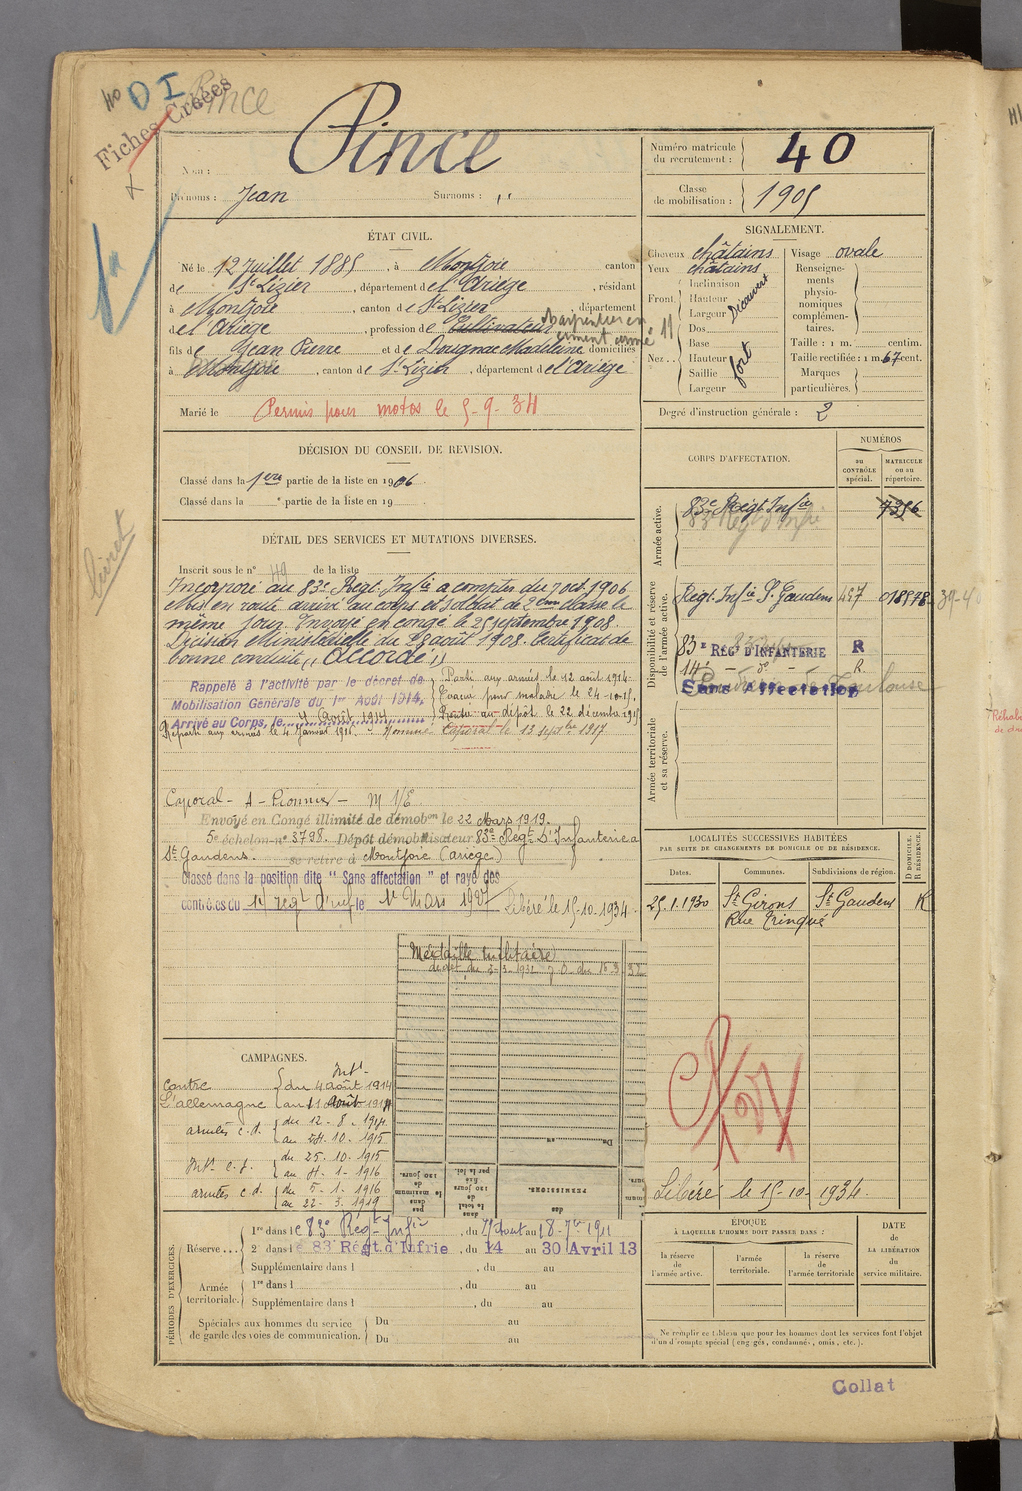 40 D I Pince
Fiches Créées
Pince
Nom :
Prénoms : Jean Surnoms : ,,
Numéro matricule du recrutement : 40
Classe de mobilisation : 1905
ÉTAT CIVIL.
Né le 12 Juillet 1885, à Montjoie canton
de St Lizier, département de l'Ariège, résidant
à Montjoie, canton de St Lizier, département
de l'Ariège, profession de Cultivateur charpentier en ciment armé
fils de Jean Pierre et de Dougnac Madeleine domiciliés
à Montjoie, canton de St Lizier, département de l'Ariège
Marié le Permis pour motos le 5-9-34
SIGNALEMENT.
Cheveux châtains
Yeux châtains
Front Inclinaison
Hauteur
Largeur
Découvert
Nez Dos
Base
Hauteur
Saillie
Largeur
fort
Visage ovale
Renseignements physionomiques complémentaires.
Taille : 1 m. centim.
Taille rectifiée : 1 m. 67 cent.
Marques particulières.
Degré d'instruction générale : 2
DÉCISION DU CONSEIL DE REVISION.
Classé dans la 1ère partie de la liste en 1906
Classé dans la e partie de la liste en 19
livret
CORPS D'AFFECTATION.
NUMÉROS
au CONTRÔLE spécial.
MATRICULE ou au répertoire.
Armée active.
83e Régt Infie 7356
Disponibilité et réserve de l'armée active.
Régt Infie St Gaudens 457 018578 39-40
83E RÉGT D'INFANTERIE R
14e - do - R.
Sans Affectation
Armée territoriale et sa réserve.
DÉTAIL DES SERVICES ET MUTATIONS DIVERSES.
Inscrit sous le n° 49 de la liste
Incorporé au 83e Régt Infie a compter du 7 oct 1906
Mis en route arrivé au corps et soldat de 2ème classe le
même jour. Envoyé en congé le 25 septembre 1908.
Décision Ministérielle du 28 août 1908. Certificat de
bonne conduite ,, Accordé ,,
Rappelé à l'activité par le décret de
Mobilisation Générale du 1er Août 1914.
Arrivé au Corps, le 4 Août 1914
Parti aux armées le 12 août 1914
Evacué pour maladie le 24-10-15,
Rentré au dépôt le 22 décembre 1915
Reparti aux armées le 4 Janvier 1916. - Nommé Caporal le 13 septbre 1917
Caporal - A - Pionnier - M 1/E
Envoyé en Congé illimité de démobon le 22 Mars 1919.
5e échelon n° 3798. Dépôt démobilisateur 83e Régt D'Infanterie a
St Gaudens. se retire à Montjoie (ariège)
Classé dans la position dite " Sans affectation " et rayé des
contrôles du 14 regt d'inf le 1er Mars 1927 Libéré le 15-10-1934.
Médaille militaire
LOCALITÉS SUCCESSIVES HABITÉES
PAR SUITE DE CHANGEMENTS DE DOMICILE OU DE RÉSIDENCE.
Dates. Communes. Subdivisions de région. D DOMICILE. R RÉSIDENCE.
25.1.1930 St Girons St Gaudens R
Rue Trinqué
Libéré le 15-10-1934
CAMPAGNES.
Contre L'allemagne
Intr
du 4 août 1914
au 11 Août 1914
armées c.d. du 12-8-1914
au 24-10-1915
Intr c.s. du 25.10.1915
au 4-1-1916
armées c.d. du 5-1-1916
au 22-3-1919
PERMISSIONS.
PÉRIODES D'EXERCICES.
Réserve
1re dans le 83e Régt Infie, du au 18-7bre 1911
2e dans le 83e Régt. d'Infrie, du 14 au 30 Avril 13
Supplémentaire dans l , du au
Armée territoriale.
1re dans l , du au
Supplémentaire dans l , du au
Spéciales aux hommes du service de garde des voies de communication.
Du au
Du au
ÉPOQUE
À LAQUELLE L'HOMME DOIT PASSER DANS :
la réserve de l'armée active.
l'armée territoriale.
la réserve de l'armée territoriale
DATE de LA LIBÉRATION du service militaire.
Ne remplir ce tableau que pour les hommes dont les services font l'objet
d'un décompte spécial (engagés, condamnés, omis, etc.).
Collat